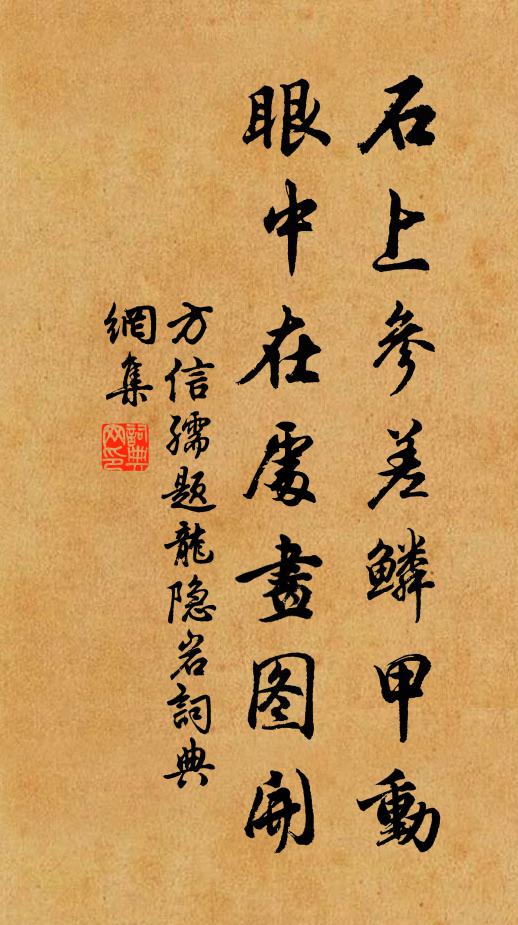 石上參差鱗甲動
眼中在處畫图開
方信孺题龍隐岩詞典
網集
詞典
网印